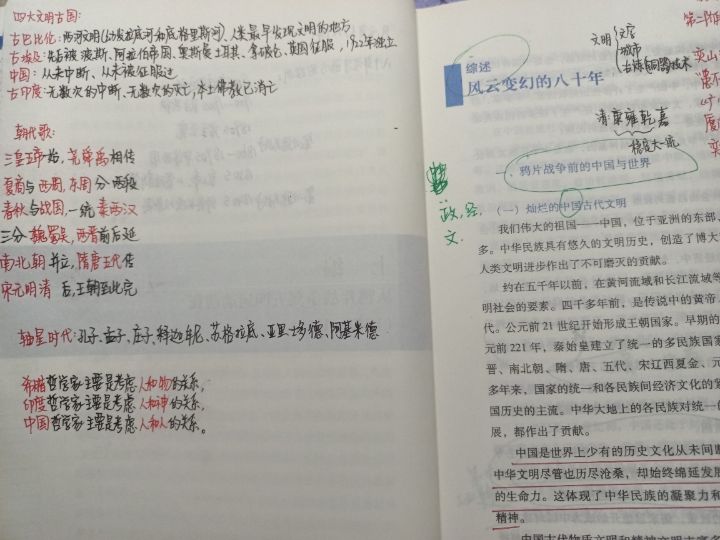 四大文明古国:
古巴比伦:两河文明(幼发拉底河和底格里斯河)、人类最早发现文明的地方
古埃及:先后被波斯、阿拉伯帝国、奥斯曼土耳其、拿破仑、英国征服,1922年独立
中国:从未中断、从未被征服过
古印度:无数次的中断、无数次的灭亡,本土佛教已消亡
朝代歌:
三皇五帝始,尧舜禹相传
夏商与西周,东周分两段
春秋与战国,一统秦两汉
三分魏蜀吴,两晋前后延
南北朝并立,隋唐五代传
宋元明清后,王朝到此完
轴星时代:孔子、孟子、庄子、释迦牟尼、苏格拉底、亚里士多德、阿基米德
希腊哲学家主要是考虑人和物的关系,
印度哲学家主要是考虑人和神的关系,
中国哲学家主要是考虑人和人的关系。
第二阶
文明
文字
城市
综述
风云变幻的八十年
清:康雍乾嘉
稳定大一统
一、鸦片战争前的中国与世界
政、经、
文
(一)灿烂的中国古代文明
我们伟大的祖国——中国,位于亚洲的东部、
多。中华民族具有悠久的文明历史,创造了博大
人类文明进步作出了不可磨灭的贡献。
约在五千年以前,在黄河流域和长江流域等
明社会的要素。四千多年前,是传说中的黄帝、
代。公元前21世纪开始形成王朝国家。早期的
元前221年,秦始皇建立了统一的多民族国家
晋、南北朝、隋、唐、五代、宋辽西夏金、元
多年来,国家的统一和各民族间经济文化的
国历史的主流。中华大地上的各民族对统一
展,都作出了贡献。
中国是世界上少有的历史文化从未间断
中华文明尽管也历尽沧桑,却始终绵延发展
的生命力。这体现了中华民族的凝聚力和
精神。
中国古代物质文明和精神文明丰富多